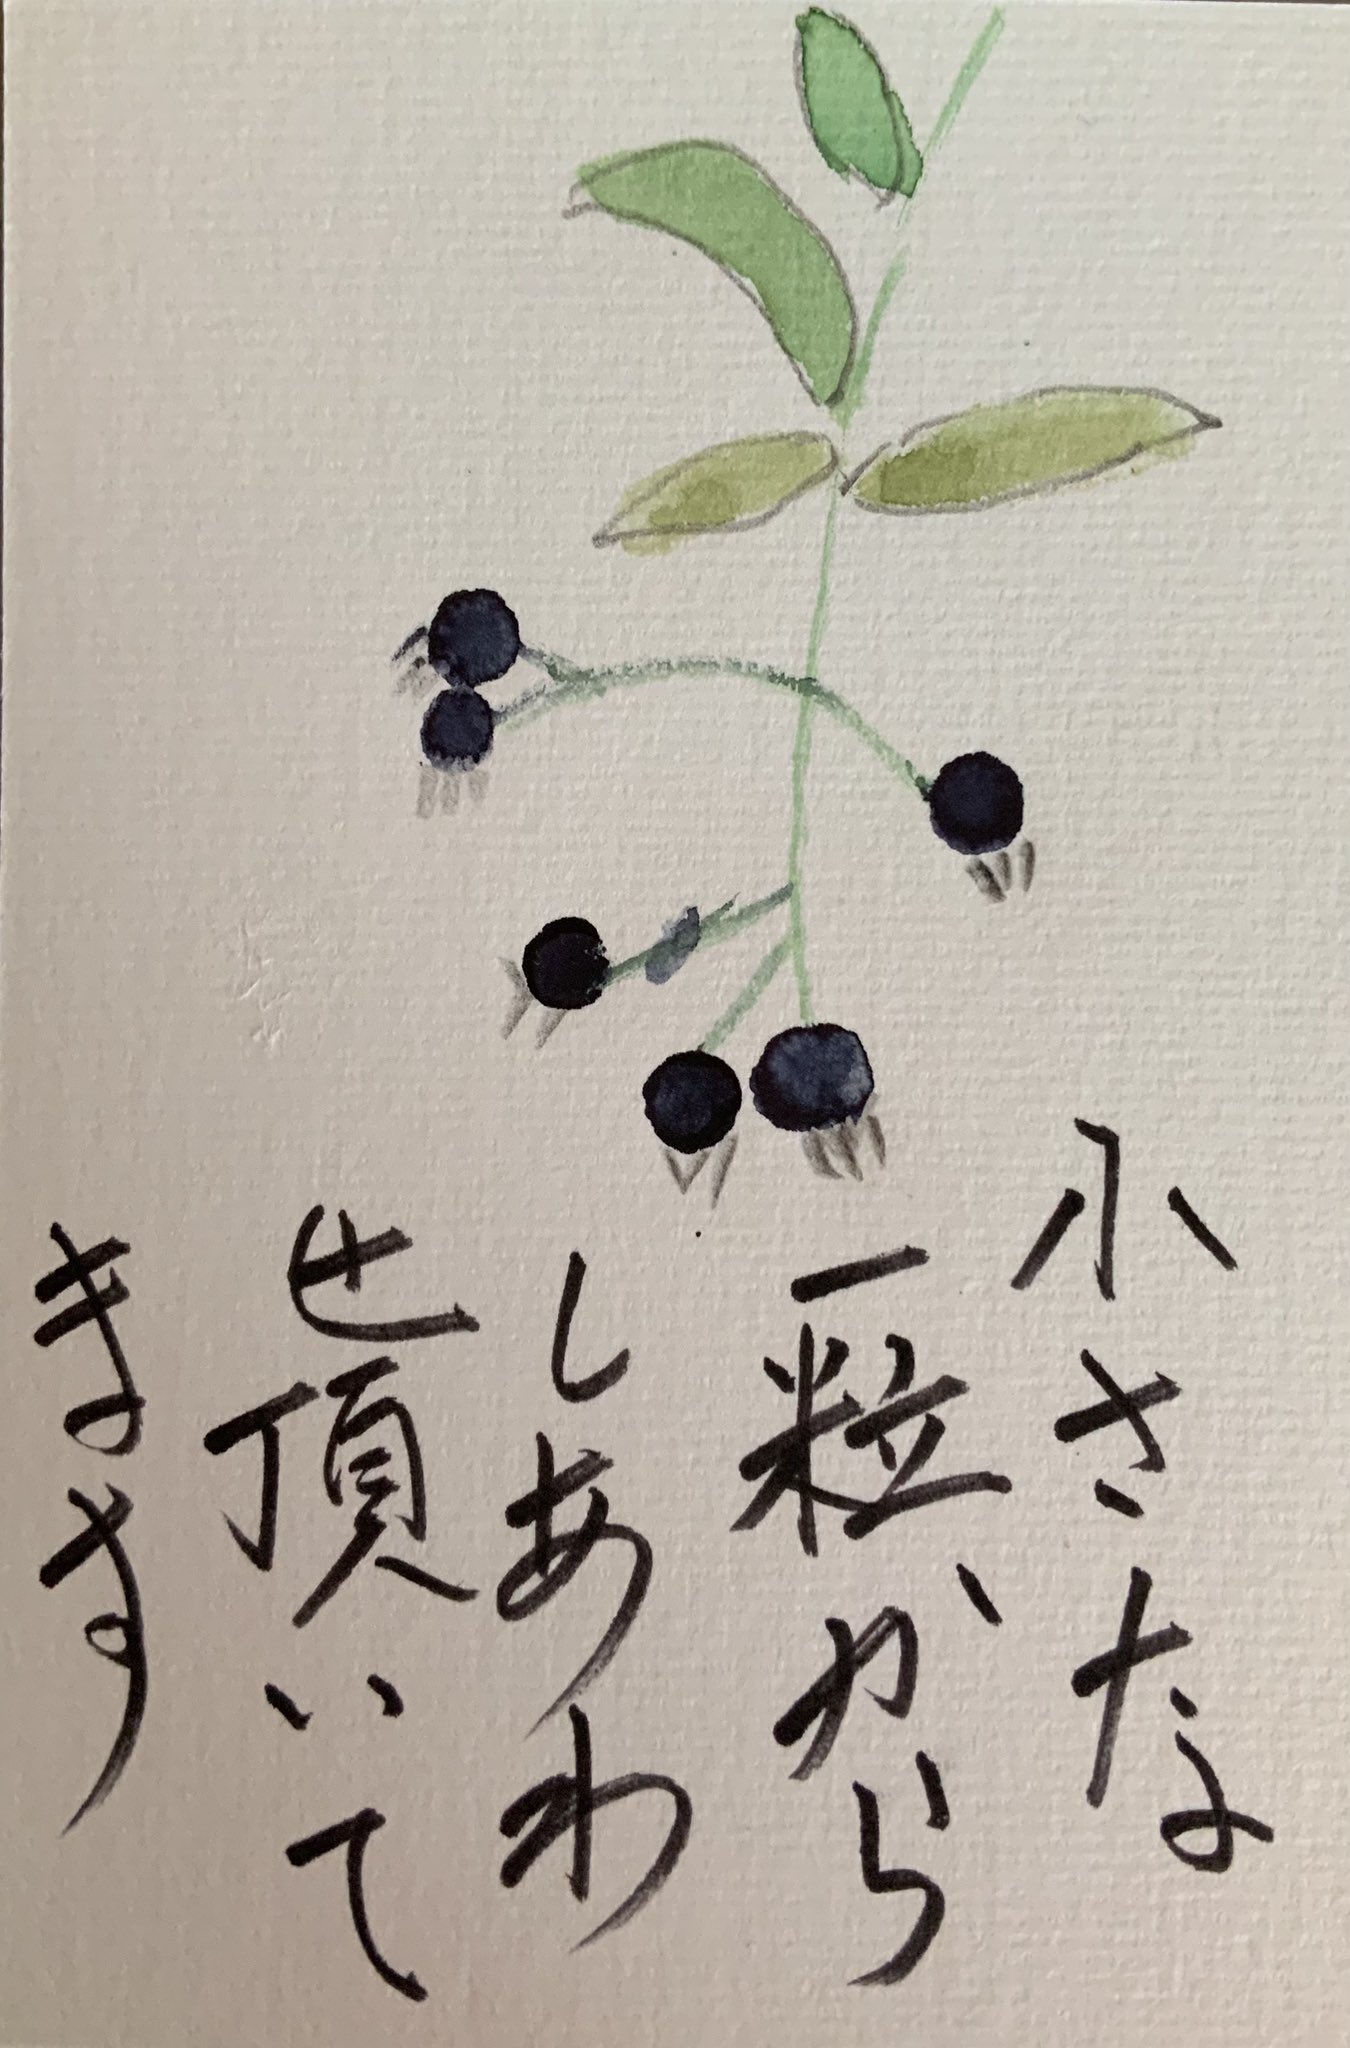 小さな
一粒から
しあわ
せ頂いて
ます